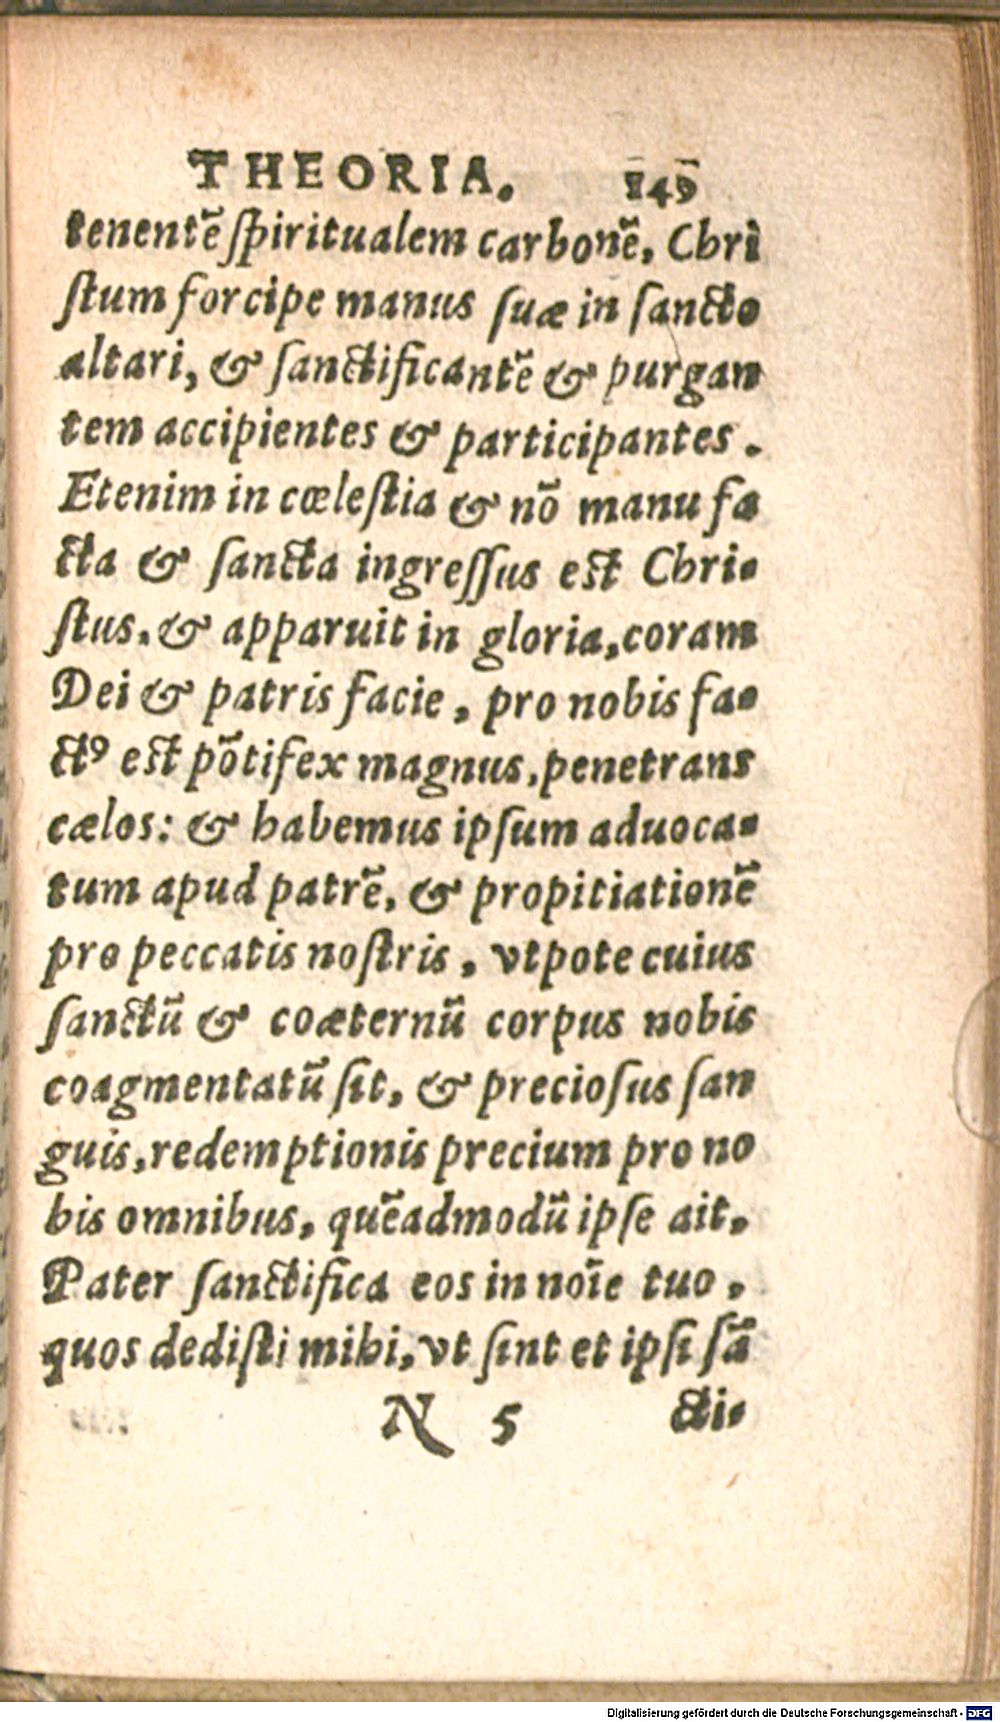 THEORIA. 149
tenentē ſpiritualem carbonē, Chri
ſtum forcipe manus ſuæ in ſancto
altari, & ſanctificantē & purgan
tem accipientes & participantes.
Etenim in cœleſtia & nō manu fa
cta & ſancta ingreſſus eſt Chri-
ſtus, & apparuit in gloria, coram
Dei & patris facie, pro nobis fa-
ctꝰ eſt pōtifex magnus, penetrans
cælos: & habemus ipſum aduoca-
tum apud patrē, & propitiationē
pro peccatis noſtris, vtpote cuius
ſanctū & coæternū corpus nobis
coagmentatū ſit, & precioſus ſan
guis, redemptionis precium pro no
bis omnibus, quēadmodū ipſe ait.
Pater ſanctifica eos in noīe tuo,
quos dediſti mihi, vt ſint et ipſi ſā
N 5 cti-
Digitalisierung gefördert durch die Deutsche Forschungsgemeinschaft - DFG